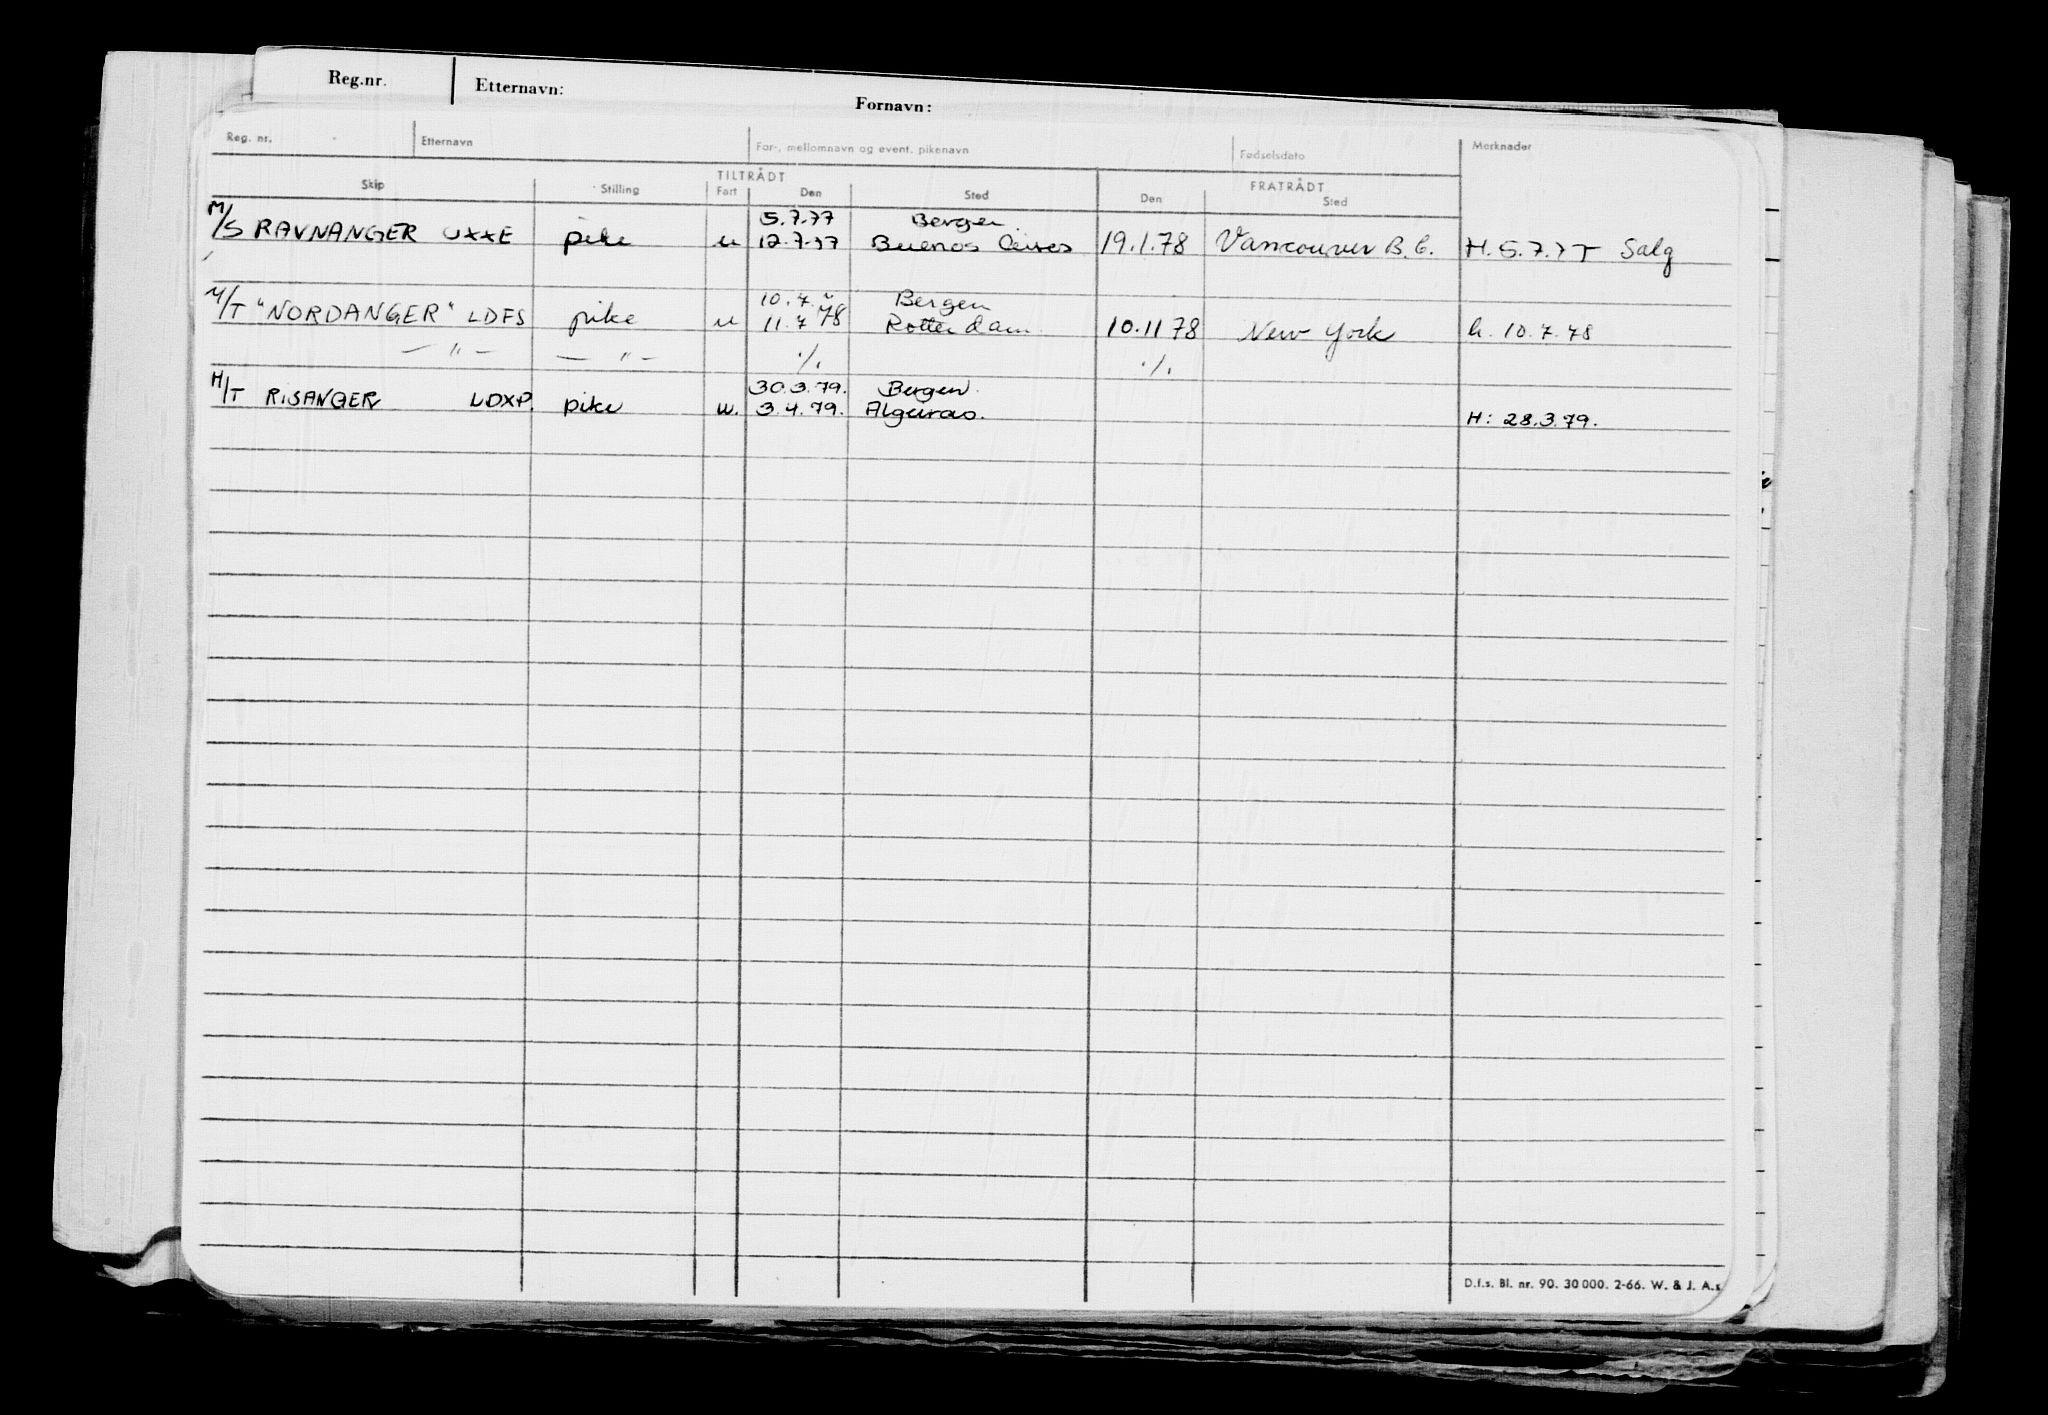 Reg.nr. Etternavn: Fornavn:
Reg. nr. Etternavn For-, mellomnavn og event. pikenavn Fødselsdato Merknader
TILTRÅDT FRATRÅDT
Skip Stilling Fart Den Sted Den Sted
5.7.77 Bergen
M/S RAVNANGER UXXE pike u 12.7.77 Buenos Aires 19.1.78 Vancouver B.C. H. 5.7.77 Salg
10.7. " Bergen
M/T "NORDANGER" LDFS pike u 11.7 78 Rotterdam 10.11 78 New York h. 10.7.78
— " — — " — ./. ./.
30.3.79. Bergen.
M/T RISANGER LDXP. pike u. 3.4.79. Algeciras. H: 28.3.79.
D.f.s. Bl. nr. 90. 30 000. 2-66. W. & J. A.s